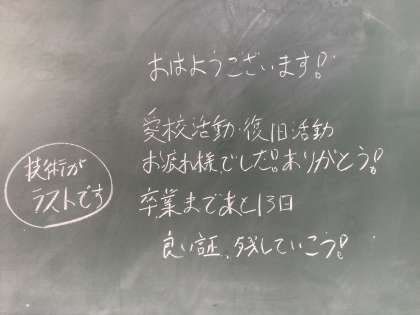 おはようございます!
愛校活動・復旧活動
お疲れ様でした!ありがとう!
卒業まであと13日
良い証、残していこう!
技術が
ラストです